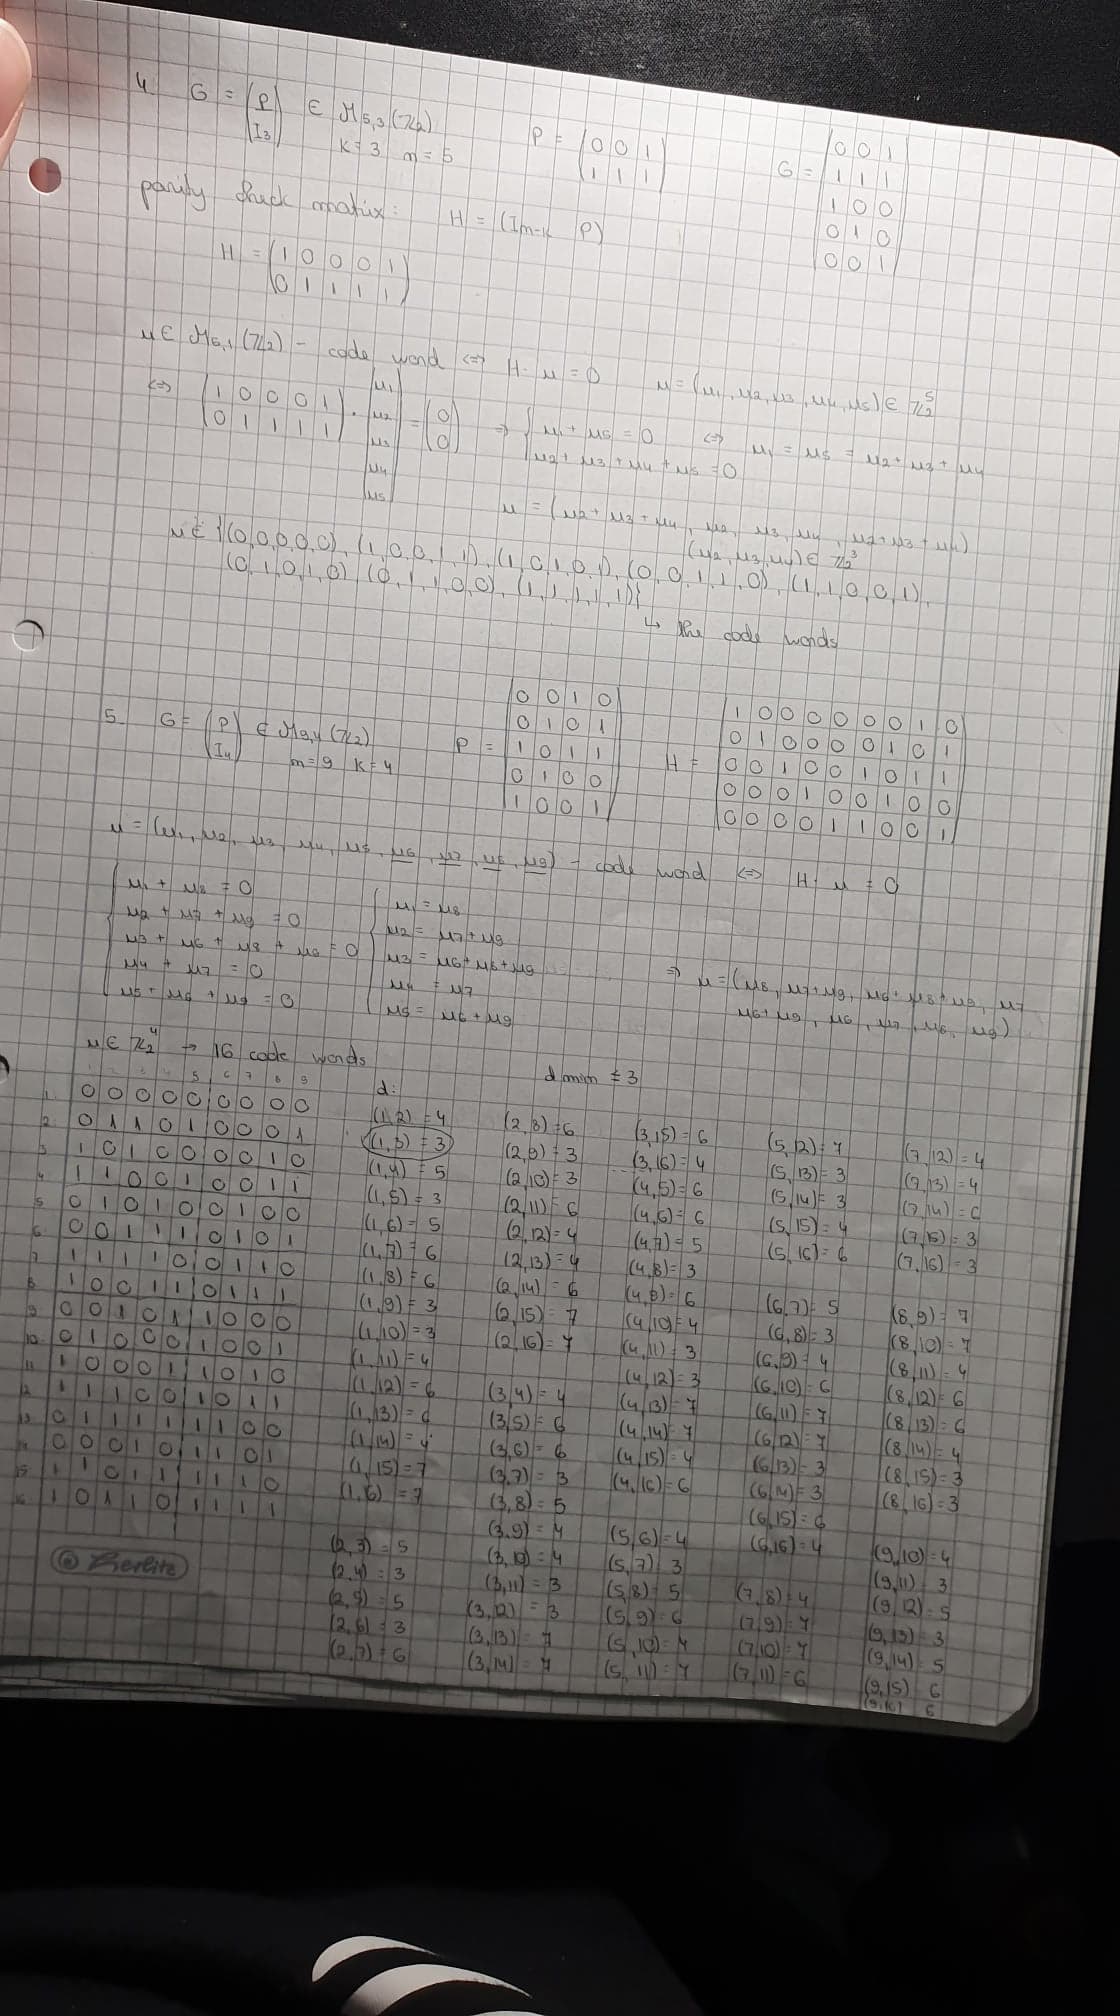 4. G = (P I3) ∈ M5,3(Z2) P = (0 0 1
1 1 1) G = (0 0 1
k=3 n=5 1 1 1
1 0 0
parity check matrix: H = (In-k P) 0 1 0
0 0 1)
H = (1 0 0 0 1
0 1 1 1 1)
u ∈ M5,1(Z2) - code word <=> H·u = 0 u = (u1, u2, u3, u4, u5) ∈ Z2^5
<=> (1 0 0 0 1
0 1 1 1 1) · (u1 u2 u3 u4 u5) = (0 0) => { u1 + u5 = 0
u2 + u3 + u4 + u5 = 0 <=> u1 = u5 = u2 + u3 + u4
u = (u2 + u3 + u4, u2, u3, u4, u2 + u3 + u4)
(u2, u3, u4) ∈ Z2^3
u ∈ {(0,0,0,0,0), (1,0,0,1,1), (1,0,1,0,1), (0,0,1,1,0), (1,1,0,0,1),
(0,1,0,1,0), (0,1,1,0,0), (1,1,1,1,1)}
↳ the code words
5. G = (P I4) ∈ M9,4(Z2)
n=9 k=4
P = (0 0 1 0
0 1 0 1
1 0 1 1
0 1 0 0
1 0 0 1)
H = (1 0 0 0 0 0 0 1 0
0 1 0 0 0 0 1 0 1
0 0 1 0 0 1 0 1 1
0 0 0 1 0 0 1 0 0
0 0 0 0 1 1 0 0 1)
u = (u1, u2, u3, u4, u5, u6, u7, u8, u9) - code word <=> H·u = 0
u1 + u8 = 0
u2 + u7 + u9 = 0
u3 + u6 + u8 + u9 = 0
u4 + u7 = 0
u5 + u6 + u9 = 0
u1 = u8
u2 = u7 + u9
u3 = u6 + u8 + u9
u4 = u7
u5 = u6 + u9
=> u = (u8, u7+u9, u6+u8+u9, u7
u6+u9, u6, u7, u8, u9)
u ∈ Z2^4 → 16 code words
1 2 3 4 5 6 7 8 9
1. 0 0 0 0 0 0 0 0 0
2. 0 1 1 0 1 0 0 0 1
3 1 0 1 0 0 0 0 1 0
4 1 1 0 0 1 0 0 1 1
5 0 1 0 1 0 0 1 0 0
6. 0 0 1 1 1 0 1 0 1
7 1 1 1 1 0 0 1 1 0
8 1 0 0 1 1 0 1 1 1
9 0 0 1 0 1 1 0 0 0
10. 0 1 0 0 0 1 0 0 1
11 1 0 0 0 1 1 0 1 0
12 1 1 1 0 0 1 0 1 1
13 0 1 1 1 1 1 1 0 0
14 0 0 0 1 0 1 1 0 1
15 1 1 0 1 1 1 1 1 0
16. 1 0 1 1 0 1 1 1 1
Berlitz
d:
(1,2) = 4
(1,3) = 3
(1,4) = 5
(1,5) = 3
(1,6) = 5
(1,7) = 6
(1,8) = 6
(1,9) = 3
(1,10) = 3
(1,11) = 4
(1,12) = 6
(1,13) = 6
(1,14) = 4
(1,15) = 7
(1,6) = 7
(2,3) = 5
(2,4) = 3
(2,5) = 5
(2,6) = 3
(2,7) = 6
dmin = 3
(2,8) = 6
(2,9) = 3
(2,10) = 3
(2,11) = 6
(2,12) = 4
(2,13) = 4
(2,14) = 6
(2,15) = 7
(2,16) = 7
(3,4) = 4
(3,5) = 6
(3,6) = 6
(3,7) = 3
(3,8) = 5
(3,9) = 4
(3,10) = 4
(3,11) = 3
(3,12) = 3
(3,13) = 7
(3,14) = 7
(3,15) = 6
(3,16) = 4
(4,5) = 6
(4,6) = 6
(4,7) = 5
(4,8) = 3
(4,9) = 6
(4,10) = 4
(4,11) = 3
(4,12) = 3
(4,13) = 7
(4,14) = 7
(4,15) = 4
(4,16) = 6
(5,6) = 4
(5,7) 3
(5,8) = 5
(5,9) = 6
(5,10) = 4
(5,11) = 7
(5,12) = 7
(5,13) = 3
(5,14) = 3
(5,15) = 4
(5,16) = 6
(6,7) = 5
(6,8) = 3
(6,9) = 4
(6,10) = 6
(6,11) = 7
(6,12) = 7
(6,13) = 3
(6,14) = 3
(6,15) = 6
(6,16) = 4
(7,8) = 4
(7,9) = 7
(7,10) = 7
(7,11) = 6
(7,12) = 4
(7,13) = 4
(7,14) = 6
(7,15) = 3
(7,16) = 3
(8,9) = 7
(8,10) = 7
(8,11) = 4
(8,12) = 6
(8,13) = 6
(8,14) = 4
(8,15) = 3
(8,16) = 3
(9,10) = 4
(9,11) = 3
(9,12) = 5
(9,13) = 3
(9,14) = 5
(9,15) 6
(9,16) 6